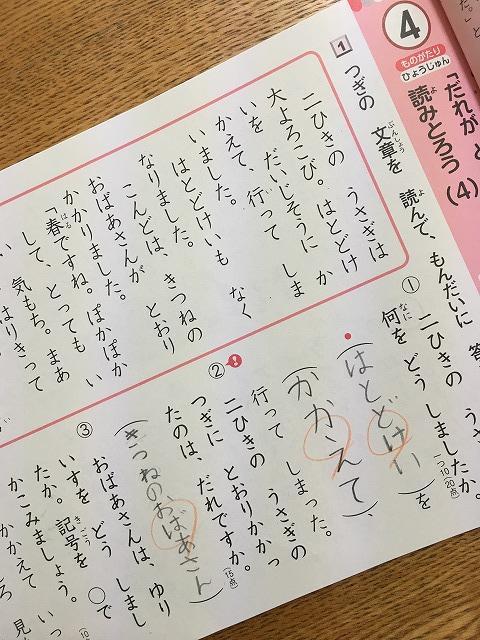 4
ものがたり
ひょうじゅん
「だれが ど
読みとろう (4)
よ
1 つぎの 文章を 読んで、もんだいに 答
ぶんしょう
よ
二ひきの うさぎは
大よろこび。はとどけ
いを だいじそうに か
かえて、行って しま
いました。
はとどけいも なく
なりました。
こんどは、きつねの
おばあさんが とおり
かかりました。
「春ですね。ぽかぽか
はる
して、とっても い
い 気もち。まあ
はりきって
① 二ひきの うさ
何を どう しましたか。
なに
一つ10(20点)
(はとどけい)を
(かかえて)、
行って しまった。
② 二ひきの うさぎの
つぎに とおりかかっ
たのは、だれですか。
(15点)
(きつねのおばあさん)
③ おばあさんは、ゆり
いすを どう しまし
たか。記号を ○で
きごう
かこみましょう。
かかえて いっ
見
10